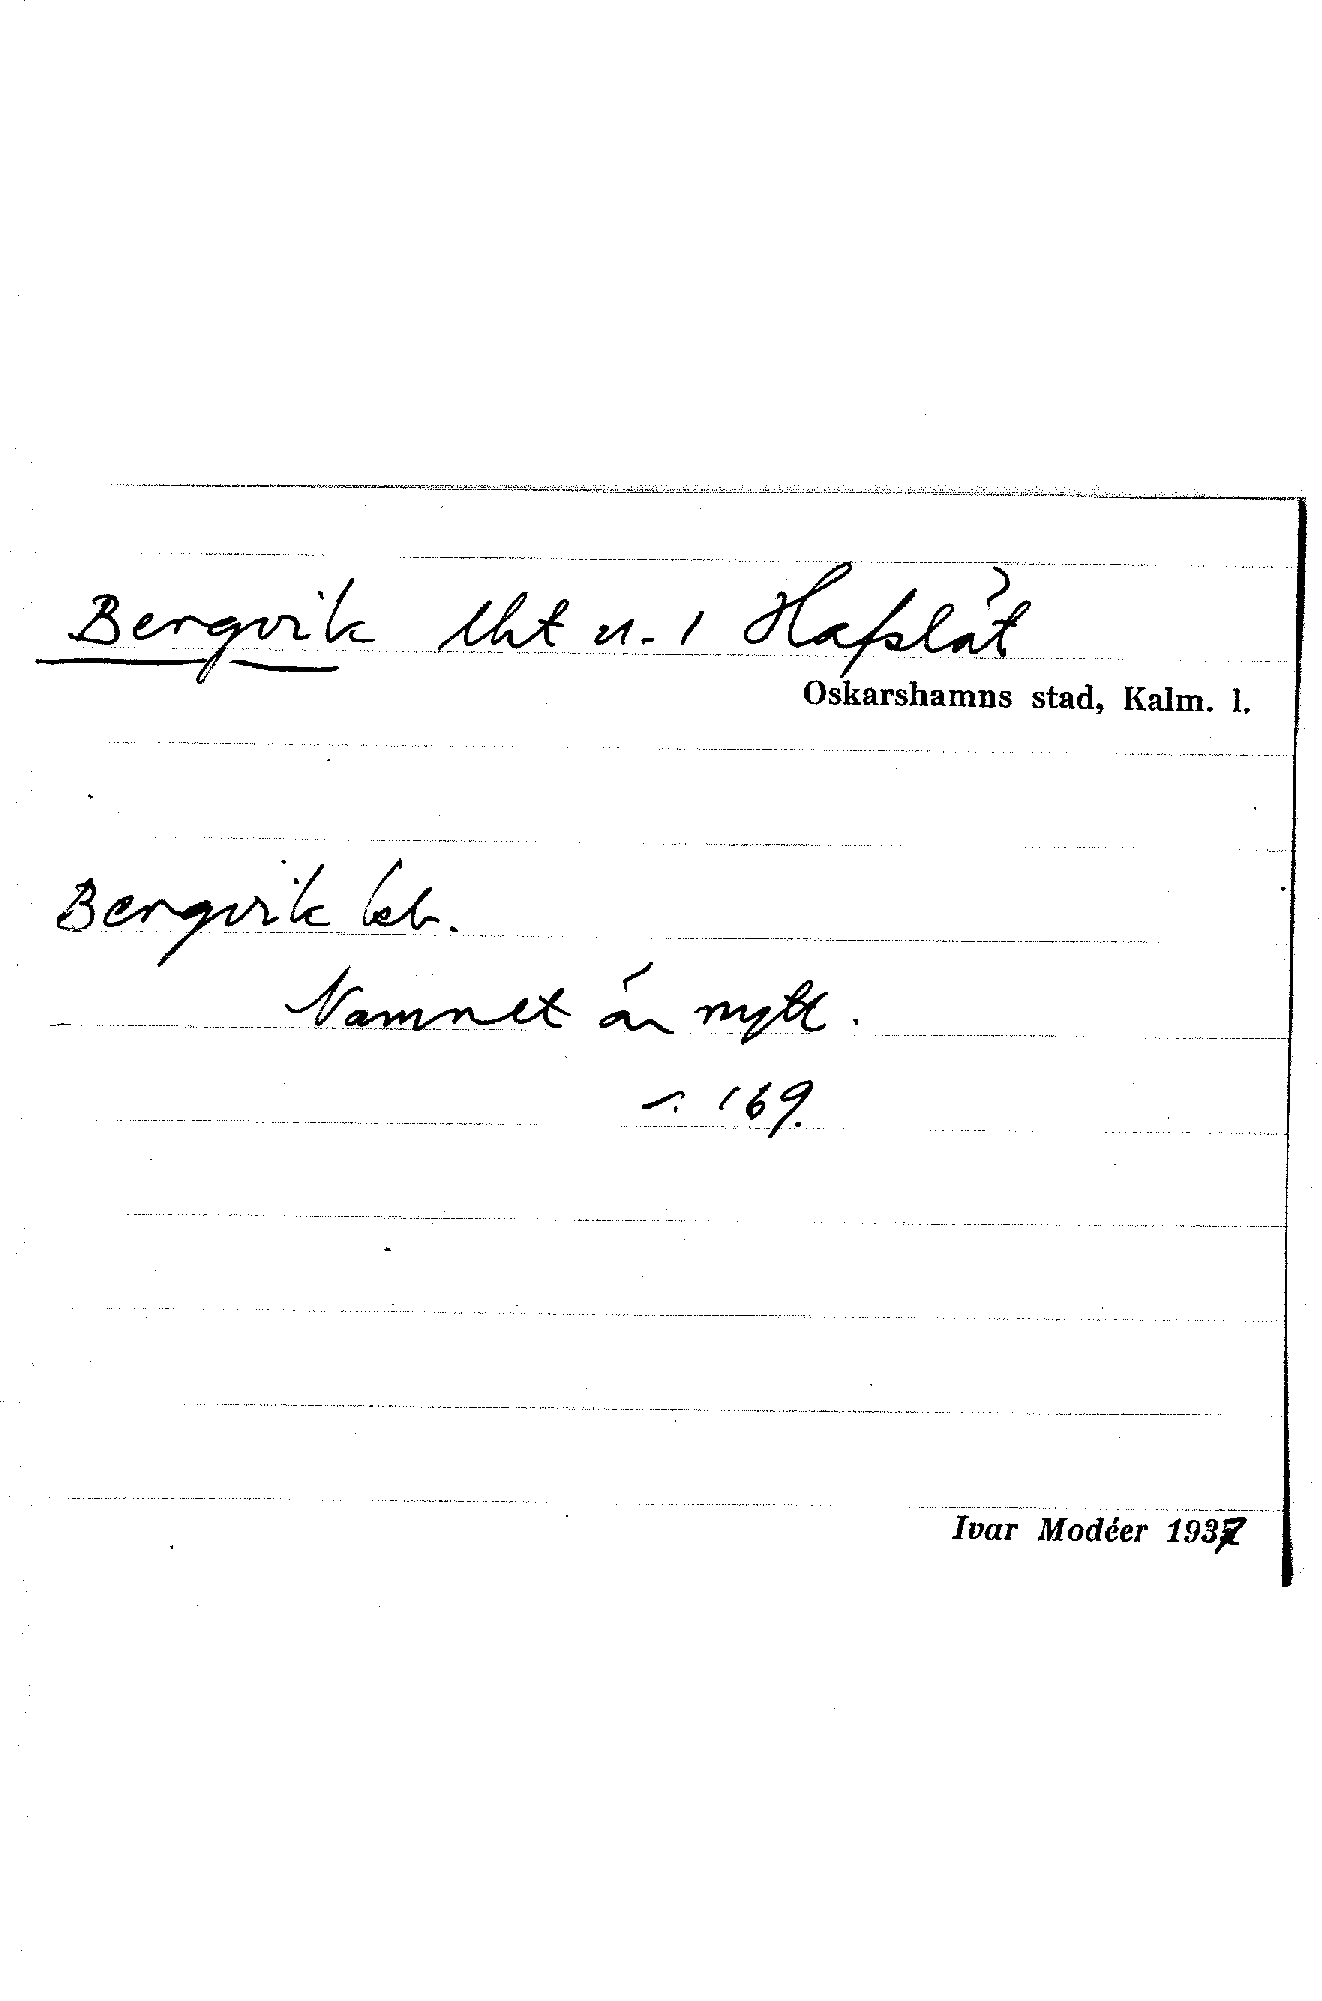 Bergvik lht u. 1 Havslät
Oskarshamns stad, Kalm. l.
Bergvik
Namnet är nytt.
s. 169.
Ivar Modéer 1937